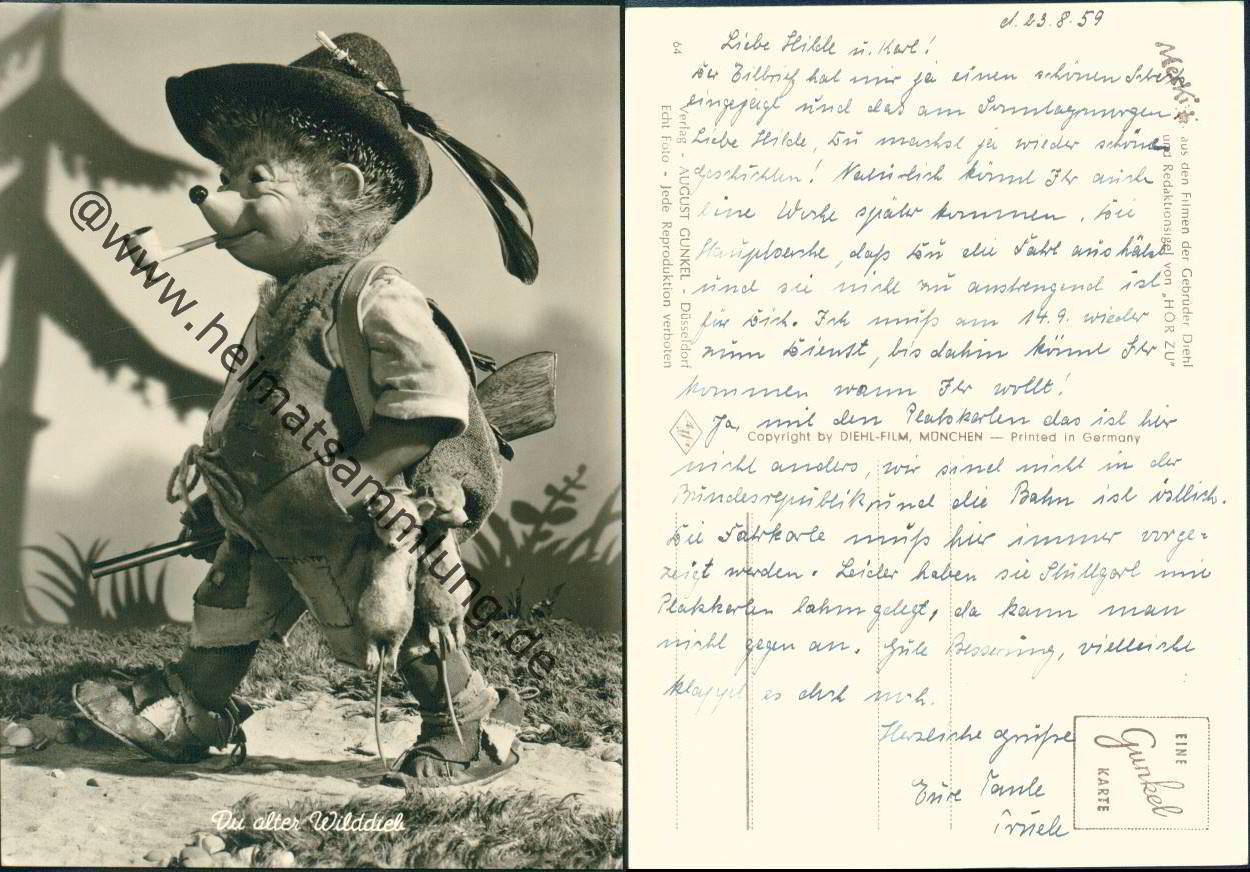 Du alter Wilddieb
@www.heimatsammlung.de
d. 23.8.59
Liebe Hilde u. Karl!
Der Eilbrief hat mir ja einen schönen Schreck
eingejagt und das am Sonntagmorgen.
Liebe Hilde, Du machst ja wieder schöne
Geschichten! Natürlich könnt Ihr auch
eine Woche später kommen. Die
Hauptsache, daß Du die Fahrt aushälst
und sie nicht zu anstrengend ist
für Dich. Ich muß am 14.9. wieder
zum Dienst, bis dahin könnt Ihr
kommen wann Ihr wollt!
Ja, mit den Platzkarten das ist hier
nicht anders, wir sind nicht in der
Bundesrepublik und die Bahn ist östlich.
Die Fahrkarte muß hier immer vorge-
zeigt werden. Leider haben sie Stuttgart mit
Platzkarten lahm gelegt, da kann man
nicht gegen an. Gute Besserung, vielleicht
klappt es doch noch.
Herzliche Grüße
Eure Tante
Trudel
64
Verlag - AUGUST GUNKEL - Düsseldorf
Echt Foto - Jede Reproduktion verboten
Mecki
aus den Filmen der Gebrüder Diehl
und Redaktionsigel von „HÖR ZU"
Copyright by DIEHL-FILM, MÜNCHEN — Printed in Germany
EINE
Gunkel
KARTE